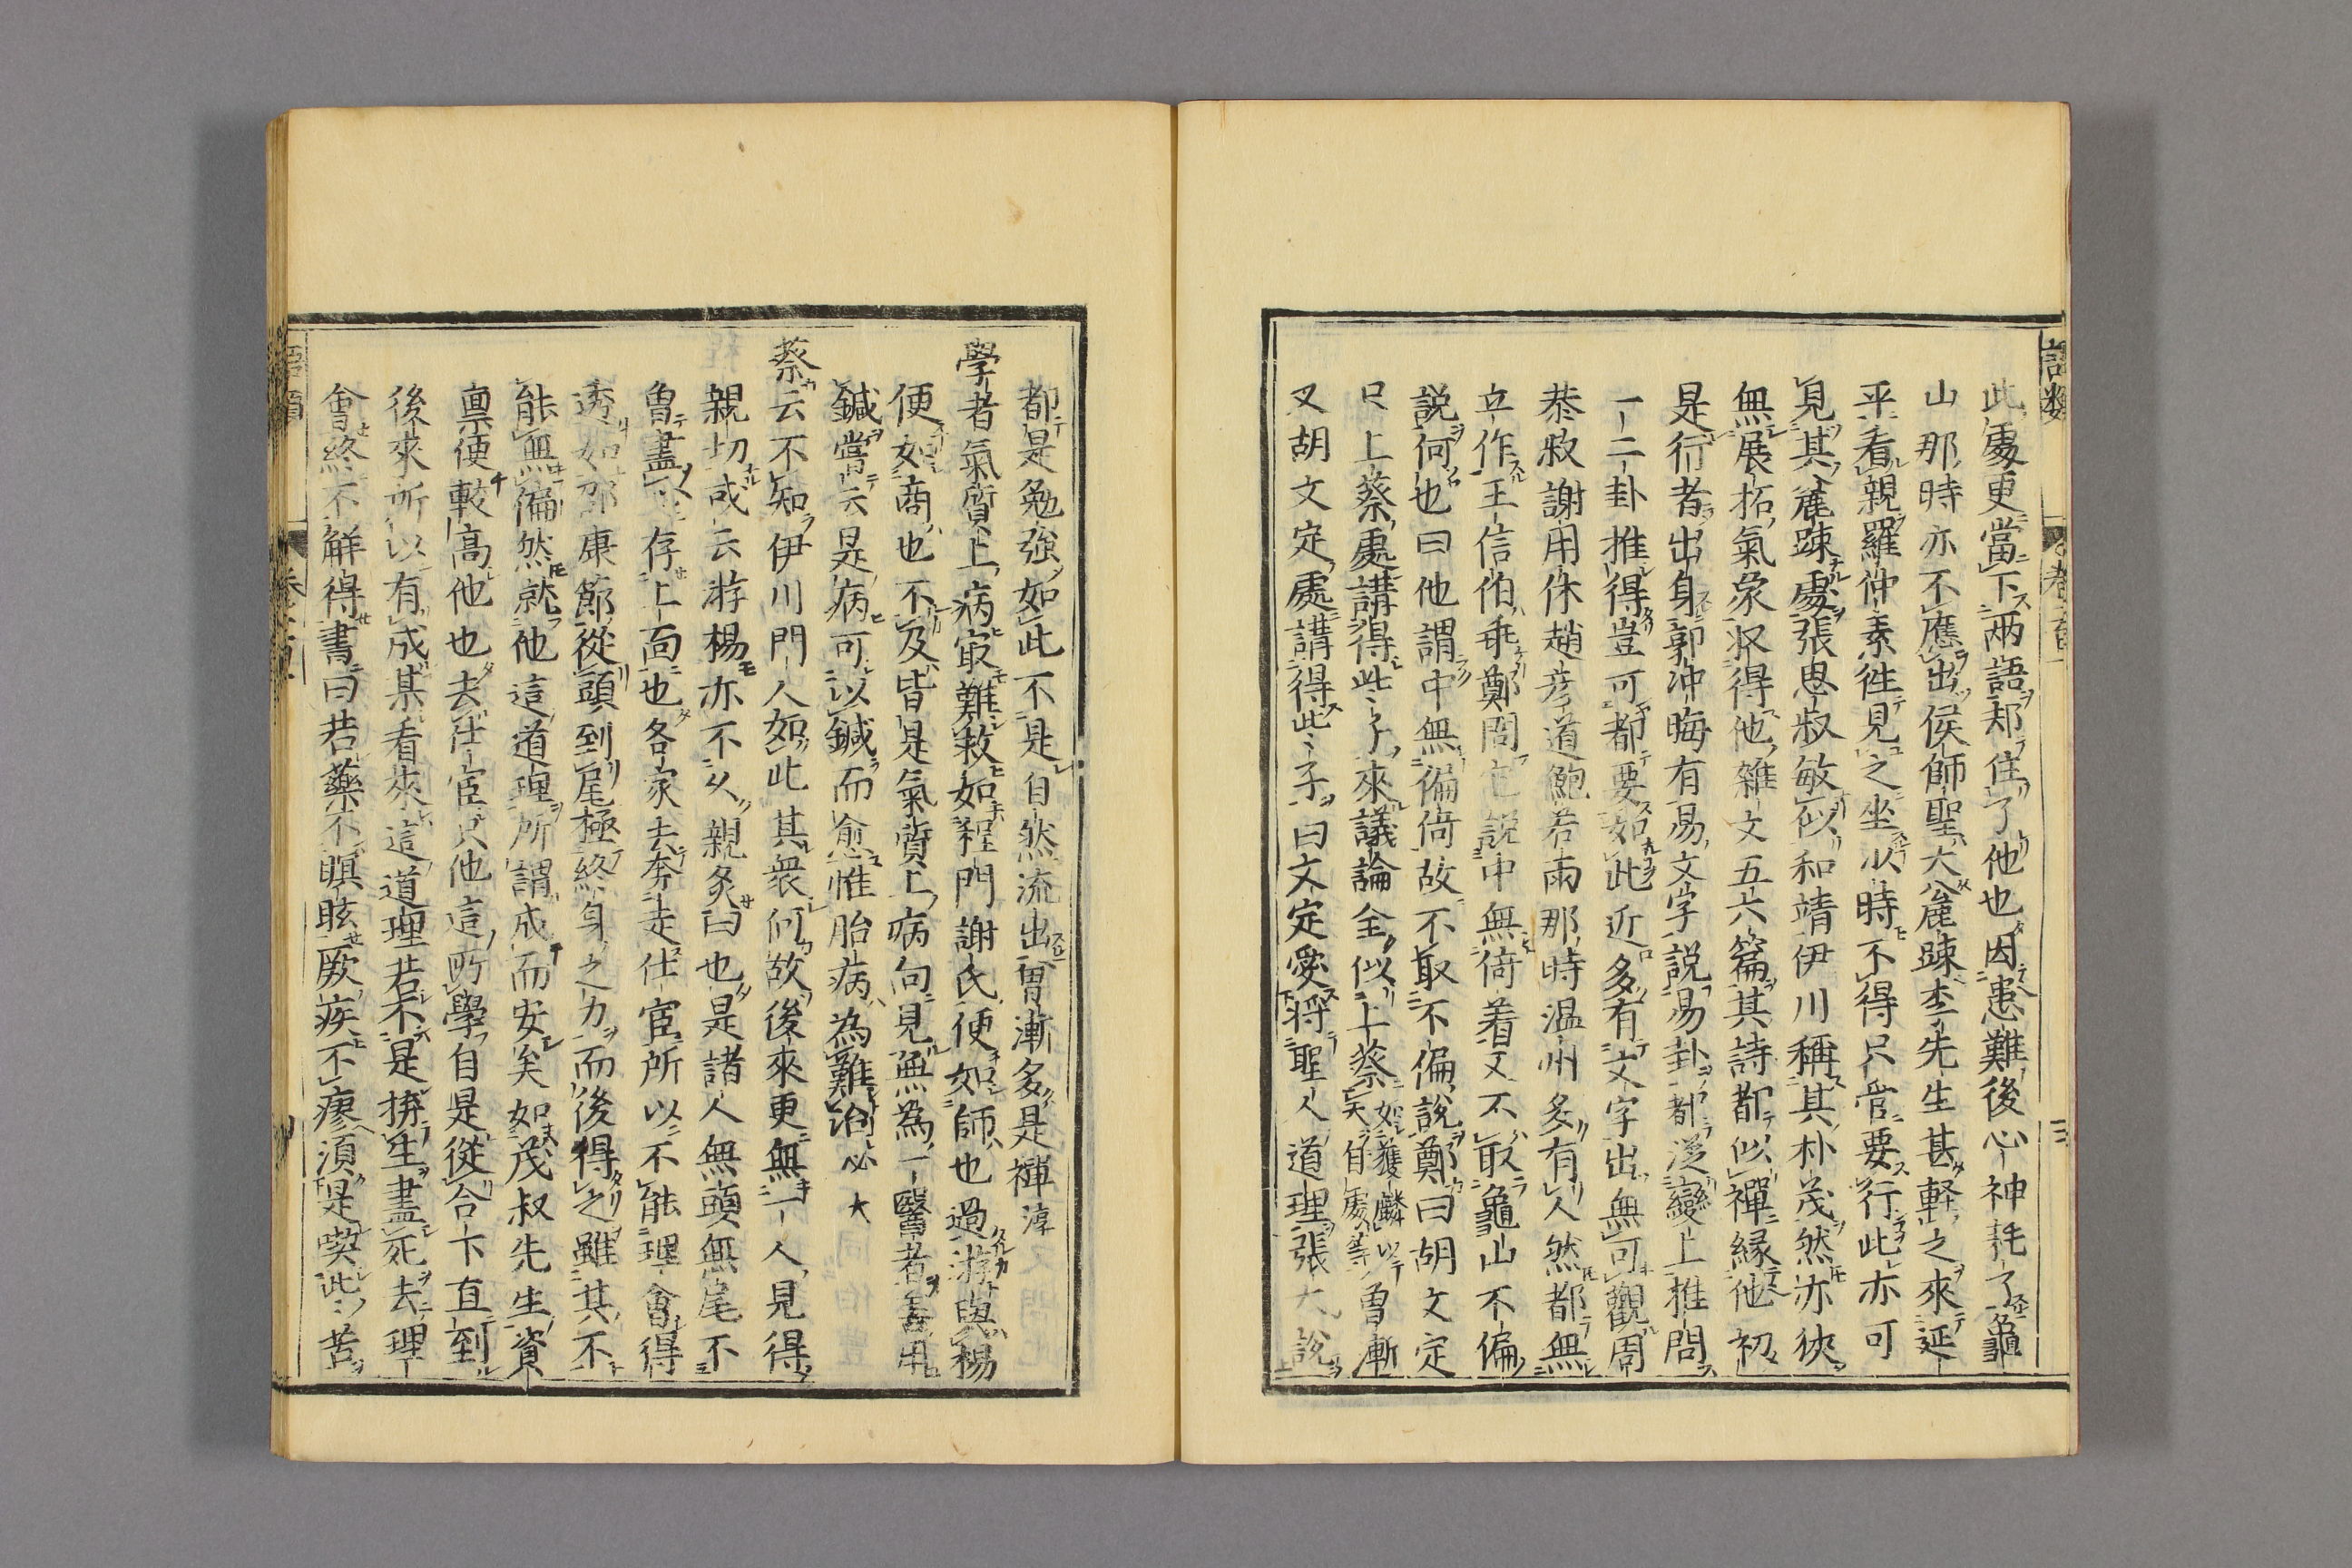 此處更當下兩語却住了他也因患難後心神耗了龜
山那時亦不應出侯師聖太麄踈李先生甚輕之來延
平看親羅仲素徃見之坐少時不得只管要行此亦可
見其麄踈處張思叔敏似和靖伊川稱其朴茂然亦狹
無展拓氣象収得他雜文五六篇其詩都似禪緣他初
是行者出身郭冲晦有易文字說易卦都從變上推問
一二卦推得豈可都要如此近多有文字出無可觀周
恭叔謝用休趙彥道鮑若雨那時溫州多有人然都無
立作王信伯乖鄭問它說中無倚着又不取龜山不偏
說何也曰他謂中無偏倚故不取不偏說鄭曰胡文定
只上蔡處講得些子來議論全似上蔡如獲麟以天自處等曾漸
又胡文定處講得些子曰文定愛將聖人道理張大說
都是勉強如此不是自然流出曾漸多是禪淳
學者氣質上病㝡難救如程門謝氏便如師也過游與楊
便如商也不及皆是氣質上病向見無為一醫者善用
鍼嘗云是病可以鍼而愈惟胎病為難治必大
蔡云不知伊川門人如此其衆何故後來更無一人見得
親切或云游楊亦不久親炙曰也是諸人無頭無尾不
曾盡心存上面也各家去奔走仕宦所以不能理會得
透如邵康節從頭到尾極終身之力而後得之雖其不
能無偏然就他這道理所謂成而安矣如茂叔先生資
禀便較高他也去仕宦只他這所學自是從合下直到
後來所以有成某看來這道理若不是拚生盡死去理
會終不解得書曰若藥不瞑眩厥疾不瘳須是喫些苦